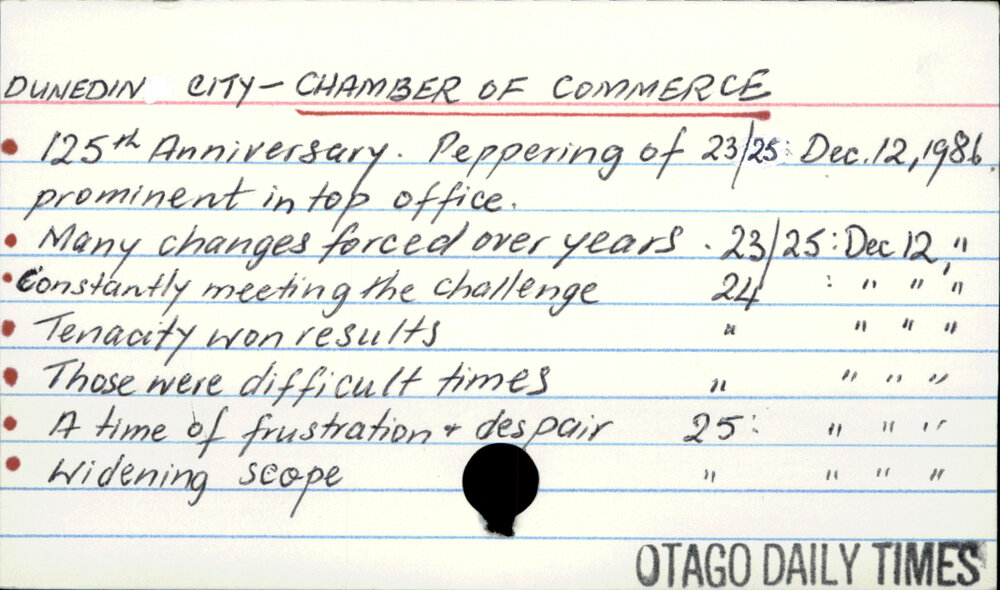 DUNEDIN CITY - CHAMBER OF COMMERCE
• 125th Anniversary. Peppering of 23/25: Dec. 12, 1986.
prominent in top office.
• Many changes forced over years. 23/25: Dec 12, "
• Constantly meeting the challenge 24 : " " "
• Tenacity won results " " " "
• Those were difficult times " " " "
• A time of frustration + despair 25: " " "
• Widening scope " " " "
OTAGO DAILY TIMES